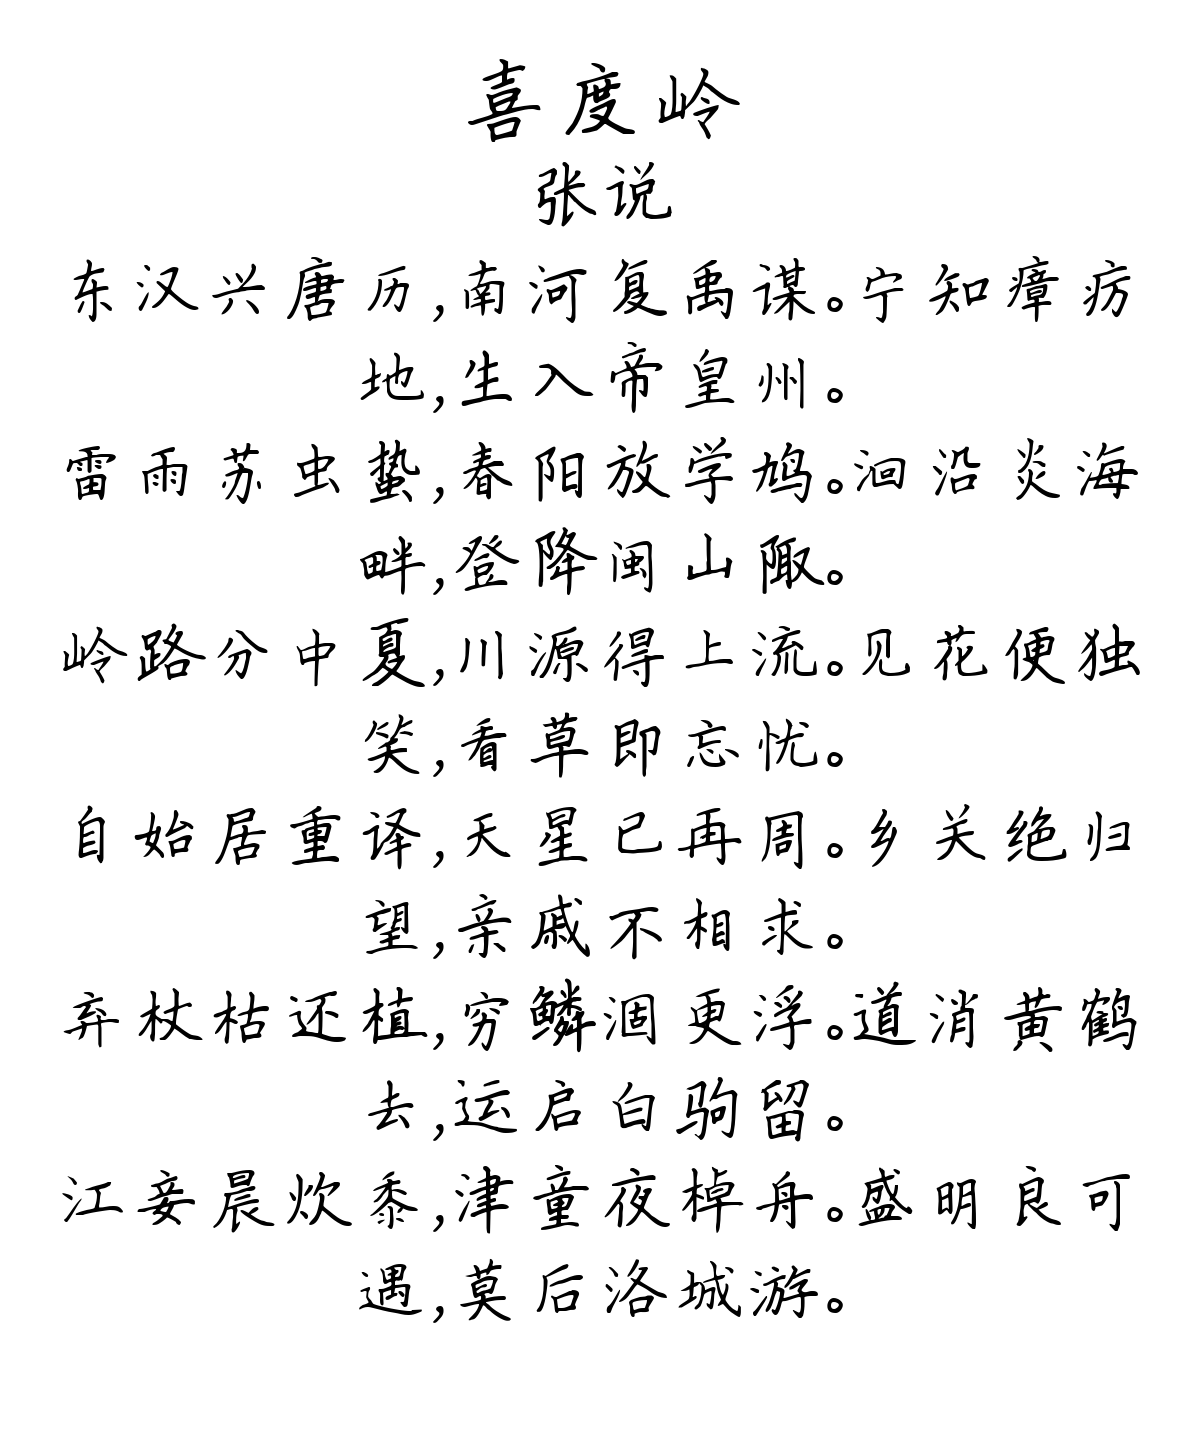 喜度岭
张说
东汉兴唐历,南河复禹谋。宁知瘴疠
地,生入帝皇州。
雷雨苏虫蛰,春阳放学鸠。洄沿炎海
畔,登降闽山陬。
岭路分中夏,川源得上流。见花便独
笑,看草即忘忧。
自始居重译,天星已再周。乡关绝归
望,亲戚不相求。
弃杖枯还植,穷鳞涸更浮。道消黄鹤
去,运启白驹留。
江妾晨炊黍,津童夜棹舟。盛明良可
遇,莫后洛城游。